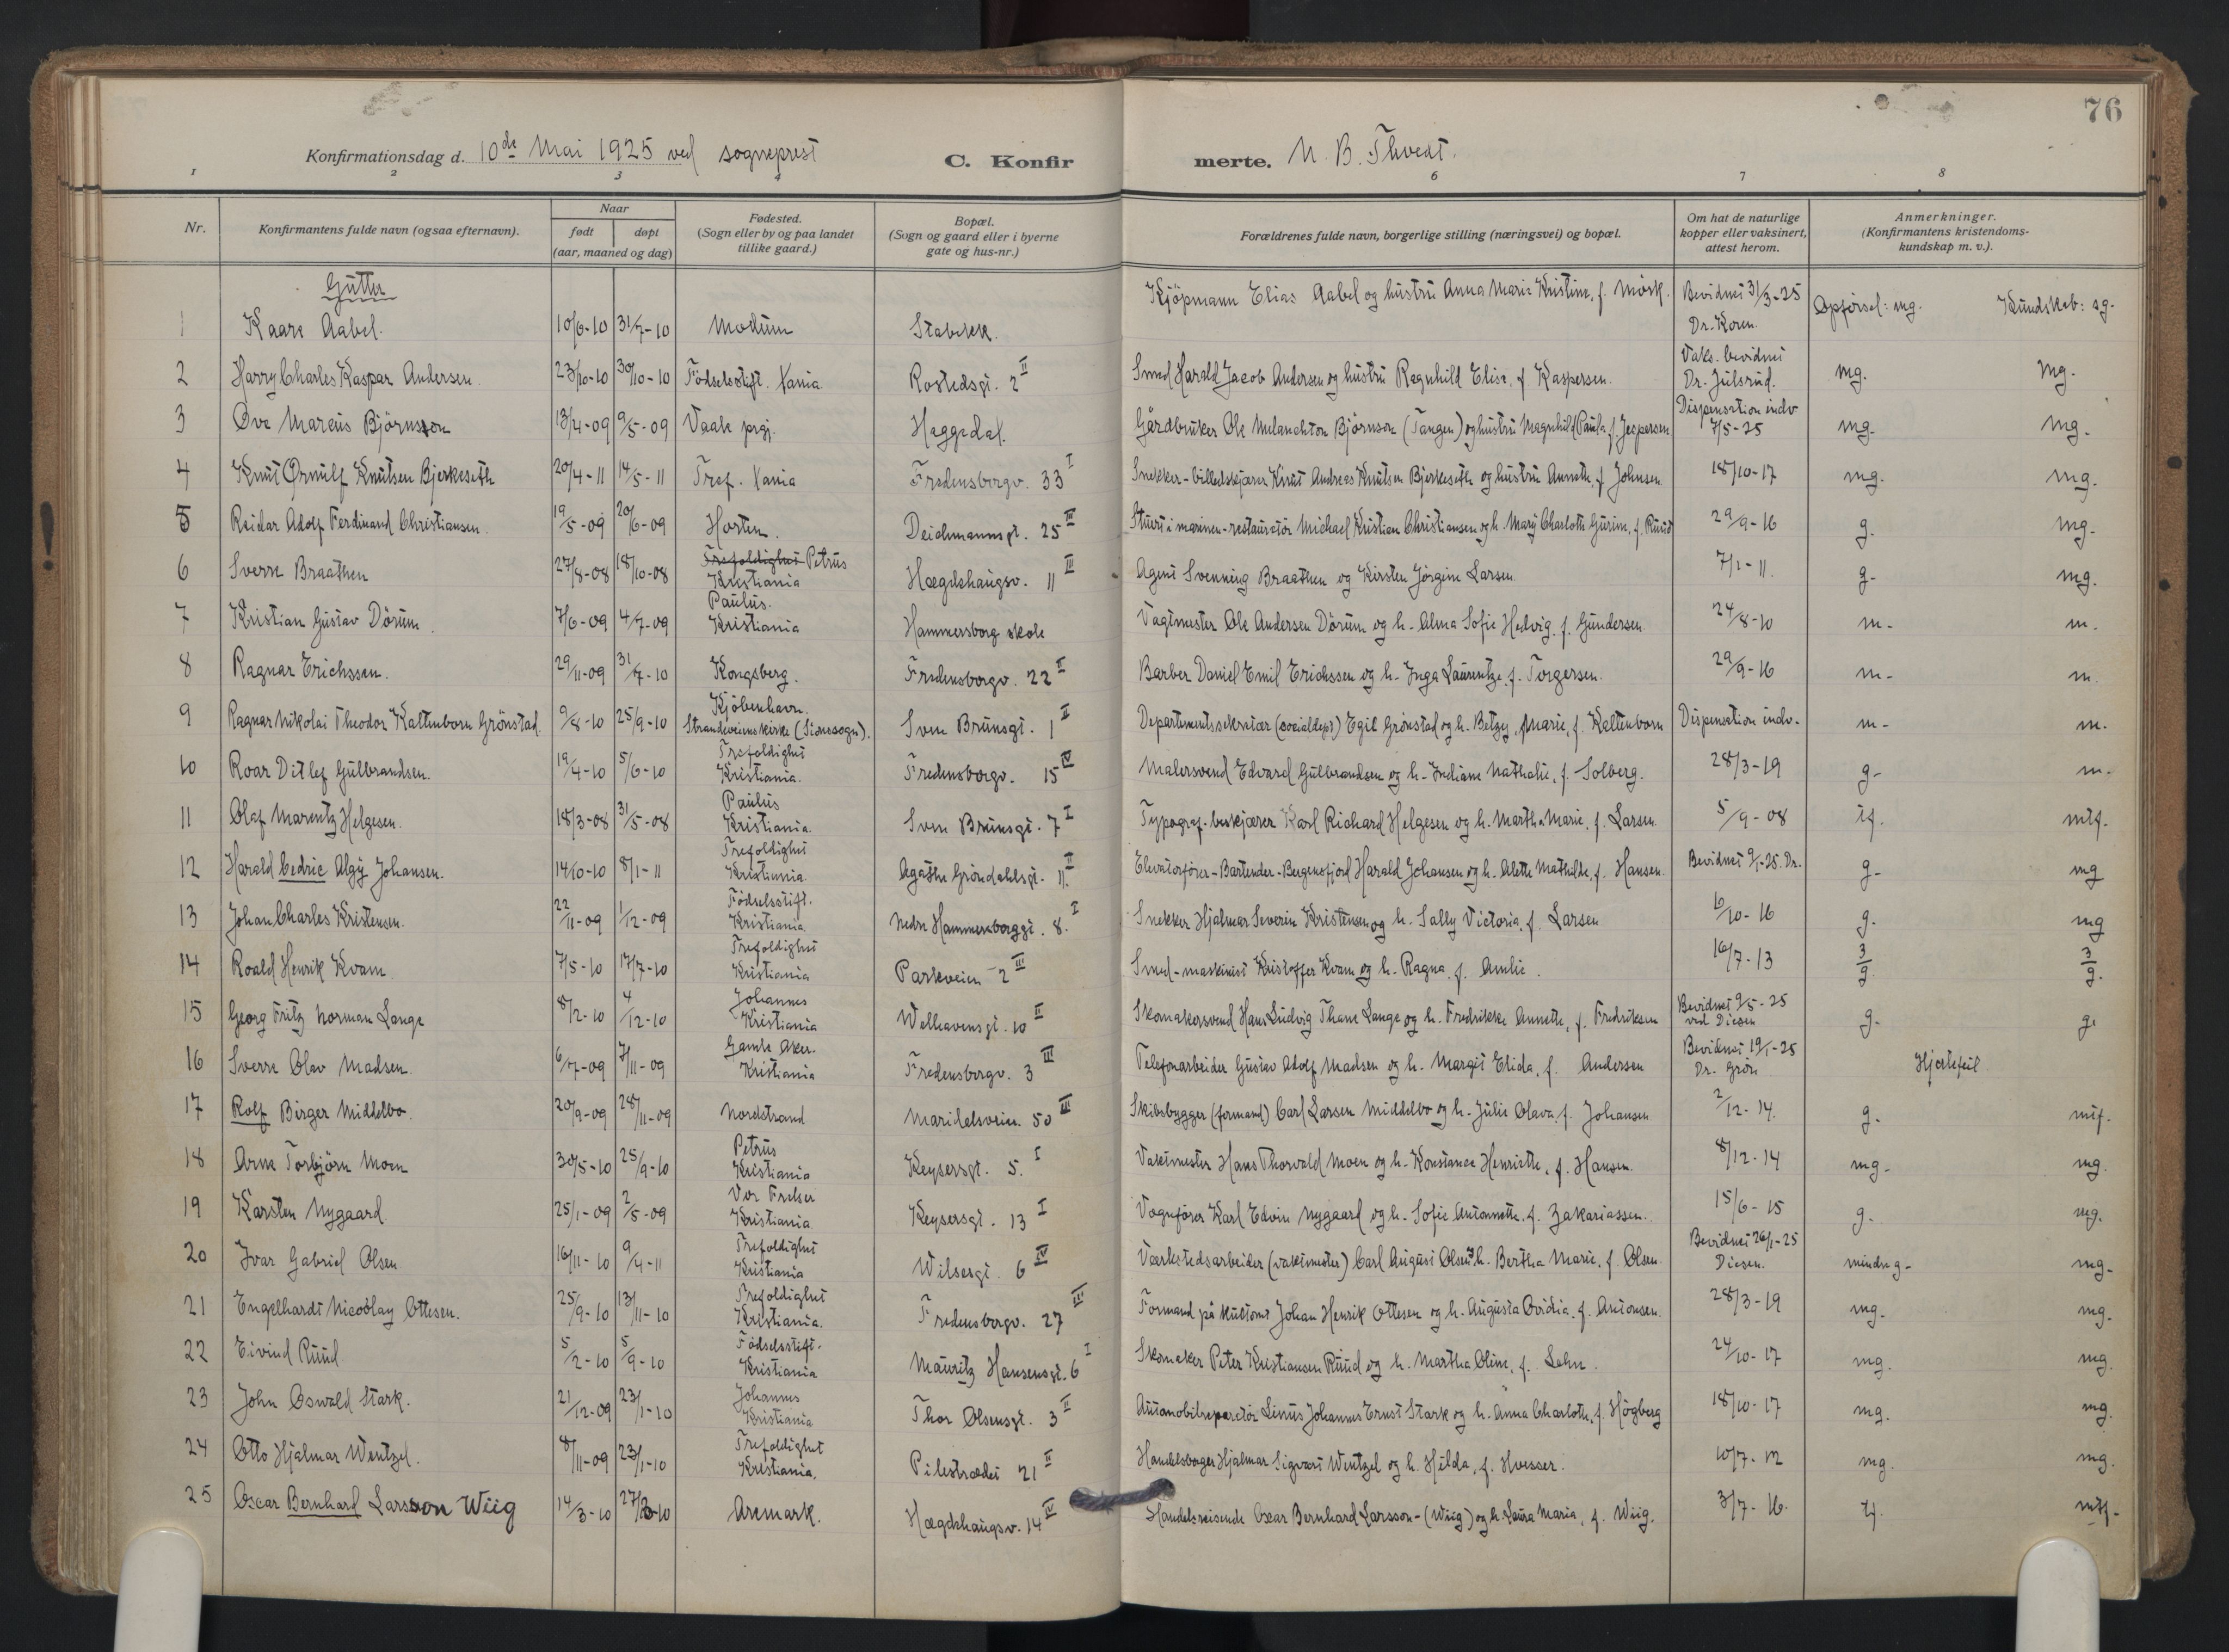 76
Konfirmationsdag d. 10de Mai 1925 ved sogneprest C. Konfirmerte. N. B. Thvedt.
1 2 3 4 6 7 8
Nr. Konfirmantens fulde navn (ogsaa efternavn). Naar født døpt (aar, maaned og dag) Fødested. (Sogn eller by og paa landet tillike gaard.) Bopæl. (Sogn og gaard eller i byerne gate og hus-nr.) Forældrenes fulde navn, borgerlige stilling (næringsvei) og bopæl. Om hat de naturlige kopper eller vaksinert, attest herom. Anmerkninger. (Konfirmantens kristendomskundskap m. v.).
Gutter
1 Kaare Aabel. 10/6-10 31/7-10 Modum Stabekk. Kjöpmann Elias Aabel og hustru Anna Marie Kristine, f. Mörk. Bevidnet 31/3-25 Dr. Koren. Opförsel: mg. Kundskab: sg.
2 Harry Charles Kaspar Andersen. 23/10-10 30/10-10 Födselsstift. Xania Rostedsgt. 2 II Smed Harald Jacob Andersen og hustru Ragnhild Elise, f. Kaspersen. Vaks. bevidnet Dr. Julsrud. mg. mg.
3 Ove Marcus Björnsson 13/4-09 9/5-09 Vaale prgj. Heggedal. Gårdbruker Ole Melanchton Björnson (Tangen) og hustru Magnhild Paula f. Jespersen Dispensation indv 7/5-25 mg. mg.
4 Knut Ørnulf Knutsen Bjerkeseth 20/4-11 14/5-11 Tref. Xania Fredensborgv. 33 I Snekker-billedskjærer Knut Andreas Knutsen Bjerkeseth og hustru Annette, f. Johnsen 18/10-17 mg. mg.
5 Reidar Adolf Ferdinand Christiansen. 19/5-09 20/6-09 Horten. Deichmannsgt. 25 III Stuert i marinen-restauratör Michael Kristian Christiansen og h. Mary Charlotte Gurine, f. Ruud 29/9-16 g. mg.
6 Sverre Braathen 27/8-08 18/10-08 Trefoldighet Petrus Kristiania Hægdehaugsv. 11 III Agent Svenning Braathen og Kirsten Jörgine Larsen 7/1-11. g- mg.
7 Kristian Gustav Dörum 7/6-09 4/7-09 Paulus. Kristiania Hammersborg skole Vagtmester Ole Andersen Dörum og h. Alma Sofie Hedvig, f. Gundersen. 24/8-10 m- m.
8 Ragnar Erichssen. 29/11-09 31/7-10 Kongsberg. Fredensborgv. 22 II Barber Daniel Emil Erichssen og h. Inga Laurentze, f. Torgersen. 29/9-16 m- m.
9 Ragnar Nikolai Theodor Kaltenborn Grönstad. 9/8-10 25/9-10 Kjöbenhavn. Strandveienskirke (Sionssogn). Sven Brunsgt. 1 II Departementssekretær (socialdept) Egil Grönstad og h. Betzy, Marie, f. Kaltenborn Dispensation indv. m- m.
10 Roar Ditlef Gulbrandsen. 19/4-10 5/6-10 Trefoldighet Kristiania. Fredensborgv. 15 IV Malersvend Edvard Gulbrandsen og h. Indiane Nathalie, f. Solberg. 28/3-19 g- m-
11 Olaf Marentz Helgesen. 18/3-08 31/5-08 Paulus Kristiania. Sven Brunsgt. 7 I Typograf-beskjærer Karl Richard Helgesen og h. Martha Marie, f. Larsen. 5/9-08 tf. mtf.
12 Harald Cedric Algy Johansen. 14/10-10 8/1-11 Trefoldighet Kristiania. Agathe Gröndahlsgt. 11. II Elevatorförer-Bartender-Bergensfjord Harald Johansen og h. Alette Mathilde, f. Hansen. Bevidnet 9/1-25. Dr. g- mg
13 Johan Charles Kristensen. 22/11-09 1/12-09 Födselsstift. Kristiania Nedre Hammersborggt. 8. I Snekker Hjalmar Severin Kristensen og h. Sally Victoria, f. Larsen 6/10-16 g. mg
14 Roald Henrik Kvam 7/5-10 17/7-10 Trefoldighet Kristiania Parkveien 2 III Smed-maskinist Kristoffer Kvam og h. Ragna, f. Amlie. 16/7-13 3/g. 3/g.
15 Georg Fritz Norman Lange 8/2-10 4/12-10 Johannes Kristiania Welhavensgt. 10 II Skomakersvend Hans Ludvig Thane Lange og h. Fredrikke Annette, f. Fredriksen Bevidnet 9/5-25 ved Diesen g. g.
16 Sverre Olav Madsen. 6/7-09 7/11-09 Gamle Aker. Kristiania Fredensborgv. 3 III Telefonarbeider Gustav Adolf Madsen og h. Margit Elida, f. Andersen Bevidnet 19/1-25 Dr. Grön Hjertefeil
17 Rolf Birger Middelbo. 20/9-09 28/11-09 Nordstrand Maridalsveien. 50 III Skibsbygger (formand) Carl Larsen Middelbo og h. Julie Olava, f. Johansen 2/12-14. g. mtf.
18 Arne Torbjörn Moen 30/5-10 25/9-10 Petrus Kristiania Keysersgt. 5. I Vaktmester Hans Thorvald Moen og h. Konstance Henriette, f. Hansen. 8/12-14 mg- mg.
19 Karsten Nygaard 25/1-09 2/5-09 Vor Frelser Kristiania Keysersgt. 13 I Vognförer Karl Edvin Nygaard og h. Sofie Antonette, f. Zakariassen. 15/6-15 g. mg.
20 Ivar Gabriel Olsen 16/11-10 9/4-11 Trefoldighet Kristiania Wilsesgt. 6 IV Værkstedsarbeider (vaktmester) Carl August Olsen og h. Bertha Marie, f. Olsen Bevidnet 26/1-25 Diesen. mindre g- mg-
21 Engelhardt Nicolay Ottesen. 25/9-10 13/11-10 Trefoldighet Kristiania. Fredensborgv. 27 III Formand på kultomt Johan Henrik Ottesen og h. Augusta Ovidia, f. Antonsen. 28/3-19 mg. mg.
22 Eivind Ruud 5/2-10 5/9-10 Födselsstift. Kristiania Mauritz Hansensgt. 6 I Skomaker Peter Kristiansen Ruud og h. Martha Oline, f. Lehn. 24/10-17 mg. mg.
23 John Oswald Stark. 21/12-09 23/1-10 Johannes Kristiania Thor Olsensgt. 3 II Automobilreparatör Linus Johannes Ernst Stark og h. Anna Charlotte, f. Högberg 18/10-17 mg. mg.
24 Otto Hjalmar Wentzel. 8/11-09 23/1-10 Trefoldighet Kristiania. Pilestrædet 21 II Handelsborger Hjalmar Sigvart Wentzel og h. Hilda, f. Hvesser. 10/7-12 mg. mg.
25 Oscar Bernhard Larsson Wiig 14/3-10 27/3-10 Aremark. Hægdehaugsv. 14 IV Handelsreisende Oscar Bernhard Larsson-(Wiig) og h. Laura Maria, f. Wiig. 3/7-16. tf. mtf-